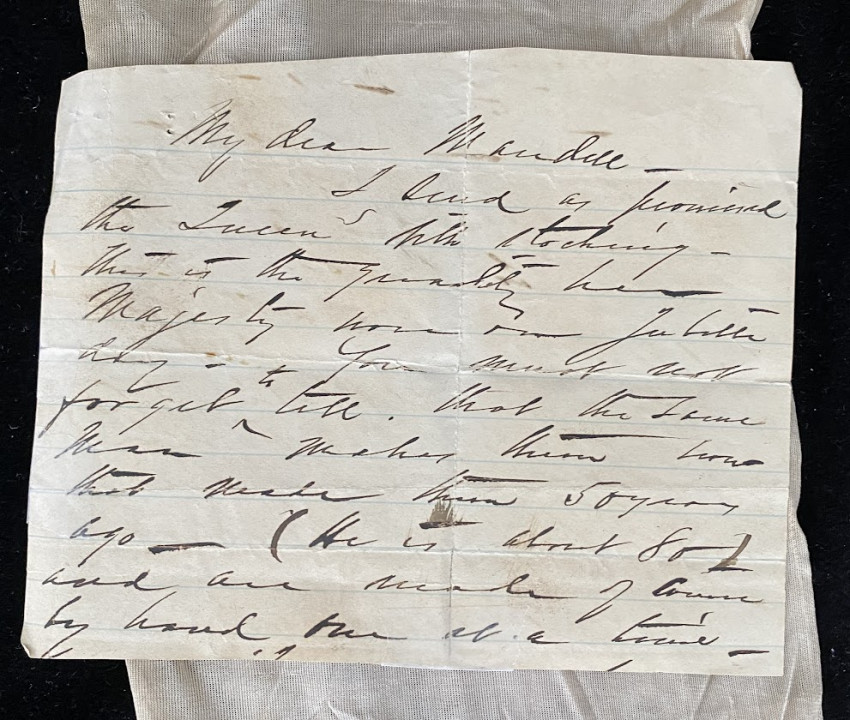 My dear Mandell —
I send as promised
the Queen's silk stocking —
this is the quality her
Majesty wore on Jubilee
day — You must not
forget to tell . that the same
man makes them now
that made them 50 years
ago — (He is about 80)
and are made of
by hand one at a time —